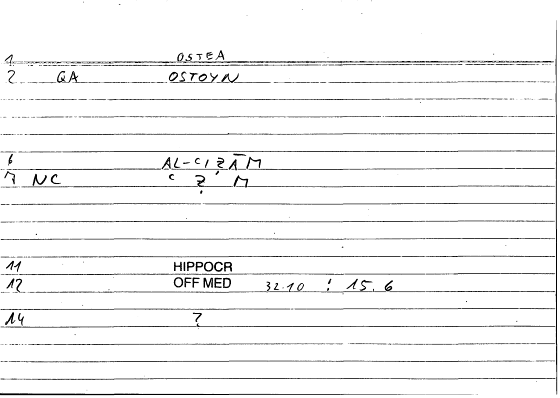 1 OSTEA
2 QA OSTOYN
6 AL-CIẒĀM
7 NC C Ẓ M
11 HIPPOCR
12 OFF MED 32.10 : 15.6
14 ?